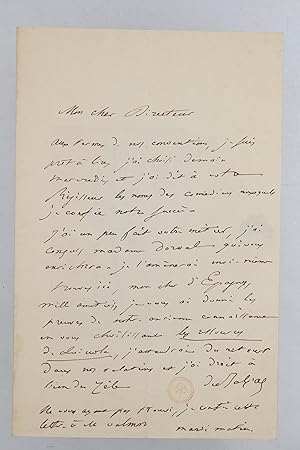 Mon cher Directeur
aux termes de nos conventions, je suis
prêt à lire, j'ai choisi demain
mercredi et j'ai dit à votre
Régisseur les noms des comédiens auxquels
je confie notre succès
J'ai un peu fait votre métier, j'ai
conquis madame dorval qui vous
enrichira. je l'amènerai moi-même
trouvez ici, mon cher d'Epagny,
mille amitiés, je vous ai donné les
preuves de notre ancienne connaissance
en vous choisissant les
de quinola, j'attendrai du retour
dans nos relations et j'ai droit à
bien du zèle
de Balzac
Ne vous ayant pas trouvé, je cette
lettre à M valmore mardi matin.